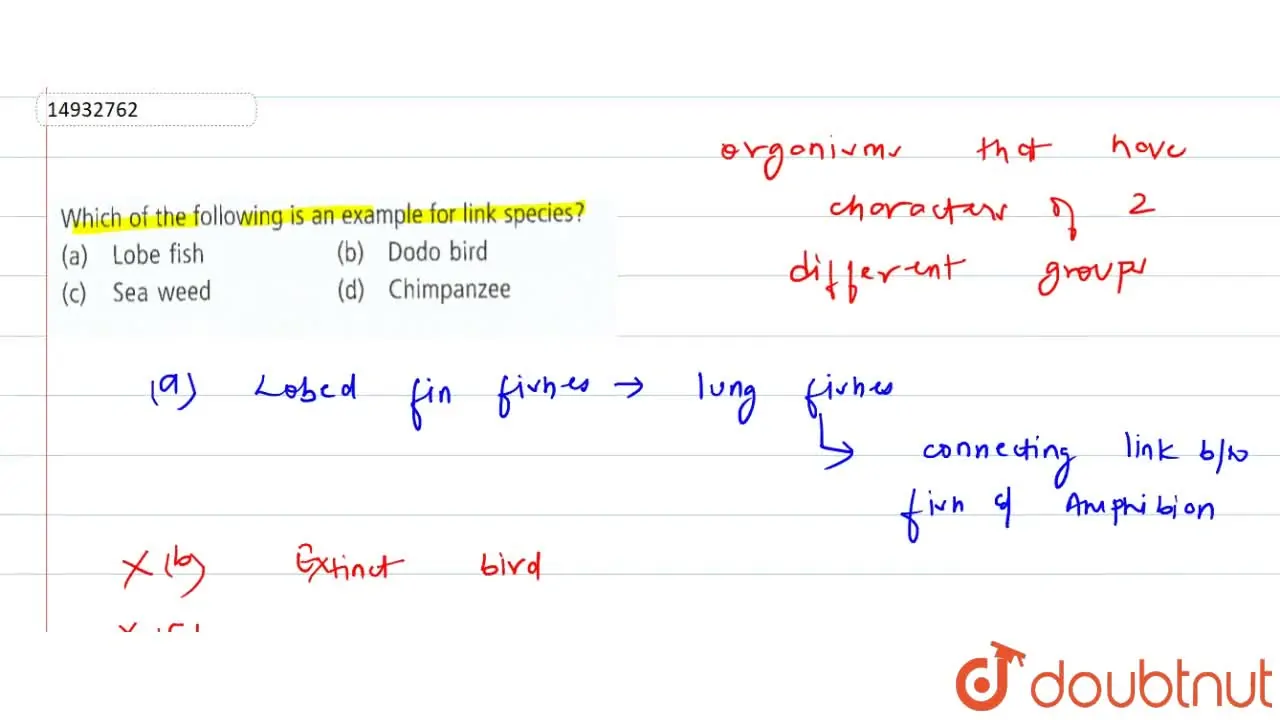 14932762
organisms that have
characters of 2
different groups
Which of the following is an example for link species?
(a) Lobe fish (b) Dodo bird
(c) Sea weed (d) Chimpanzee
(a) Lobed fin fishes → lung fishes
connecting link b/w
fish & Amphibion
X (b) Extinct bird
doubtnut